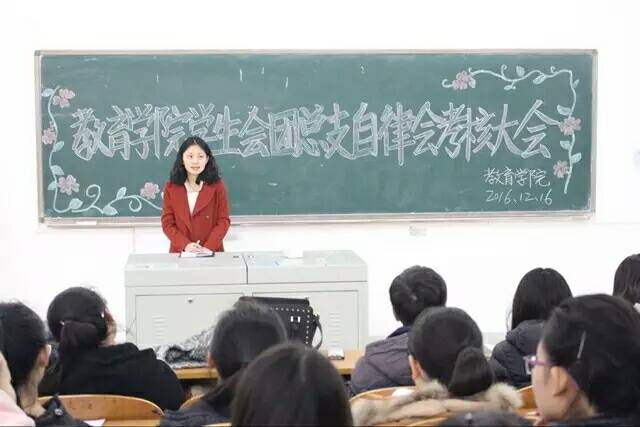 教育学院学生会团总支自律会考核大会
教育学院
2016.12.16